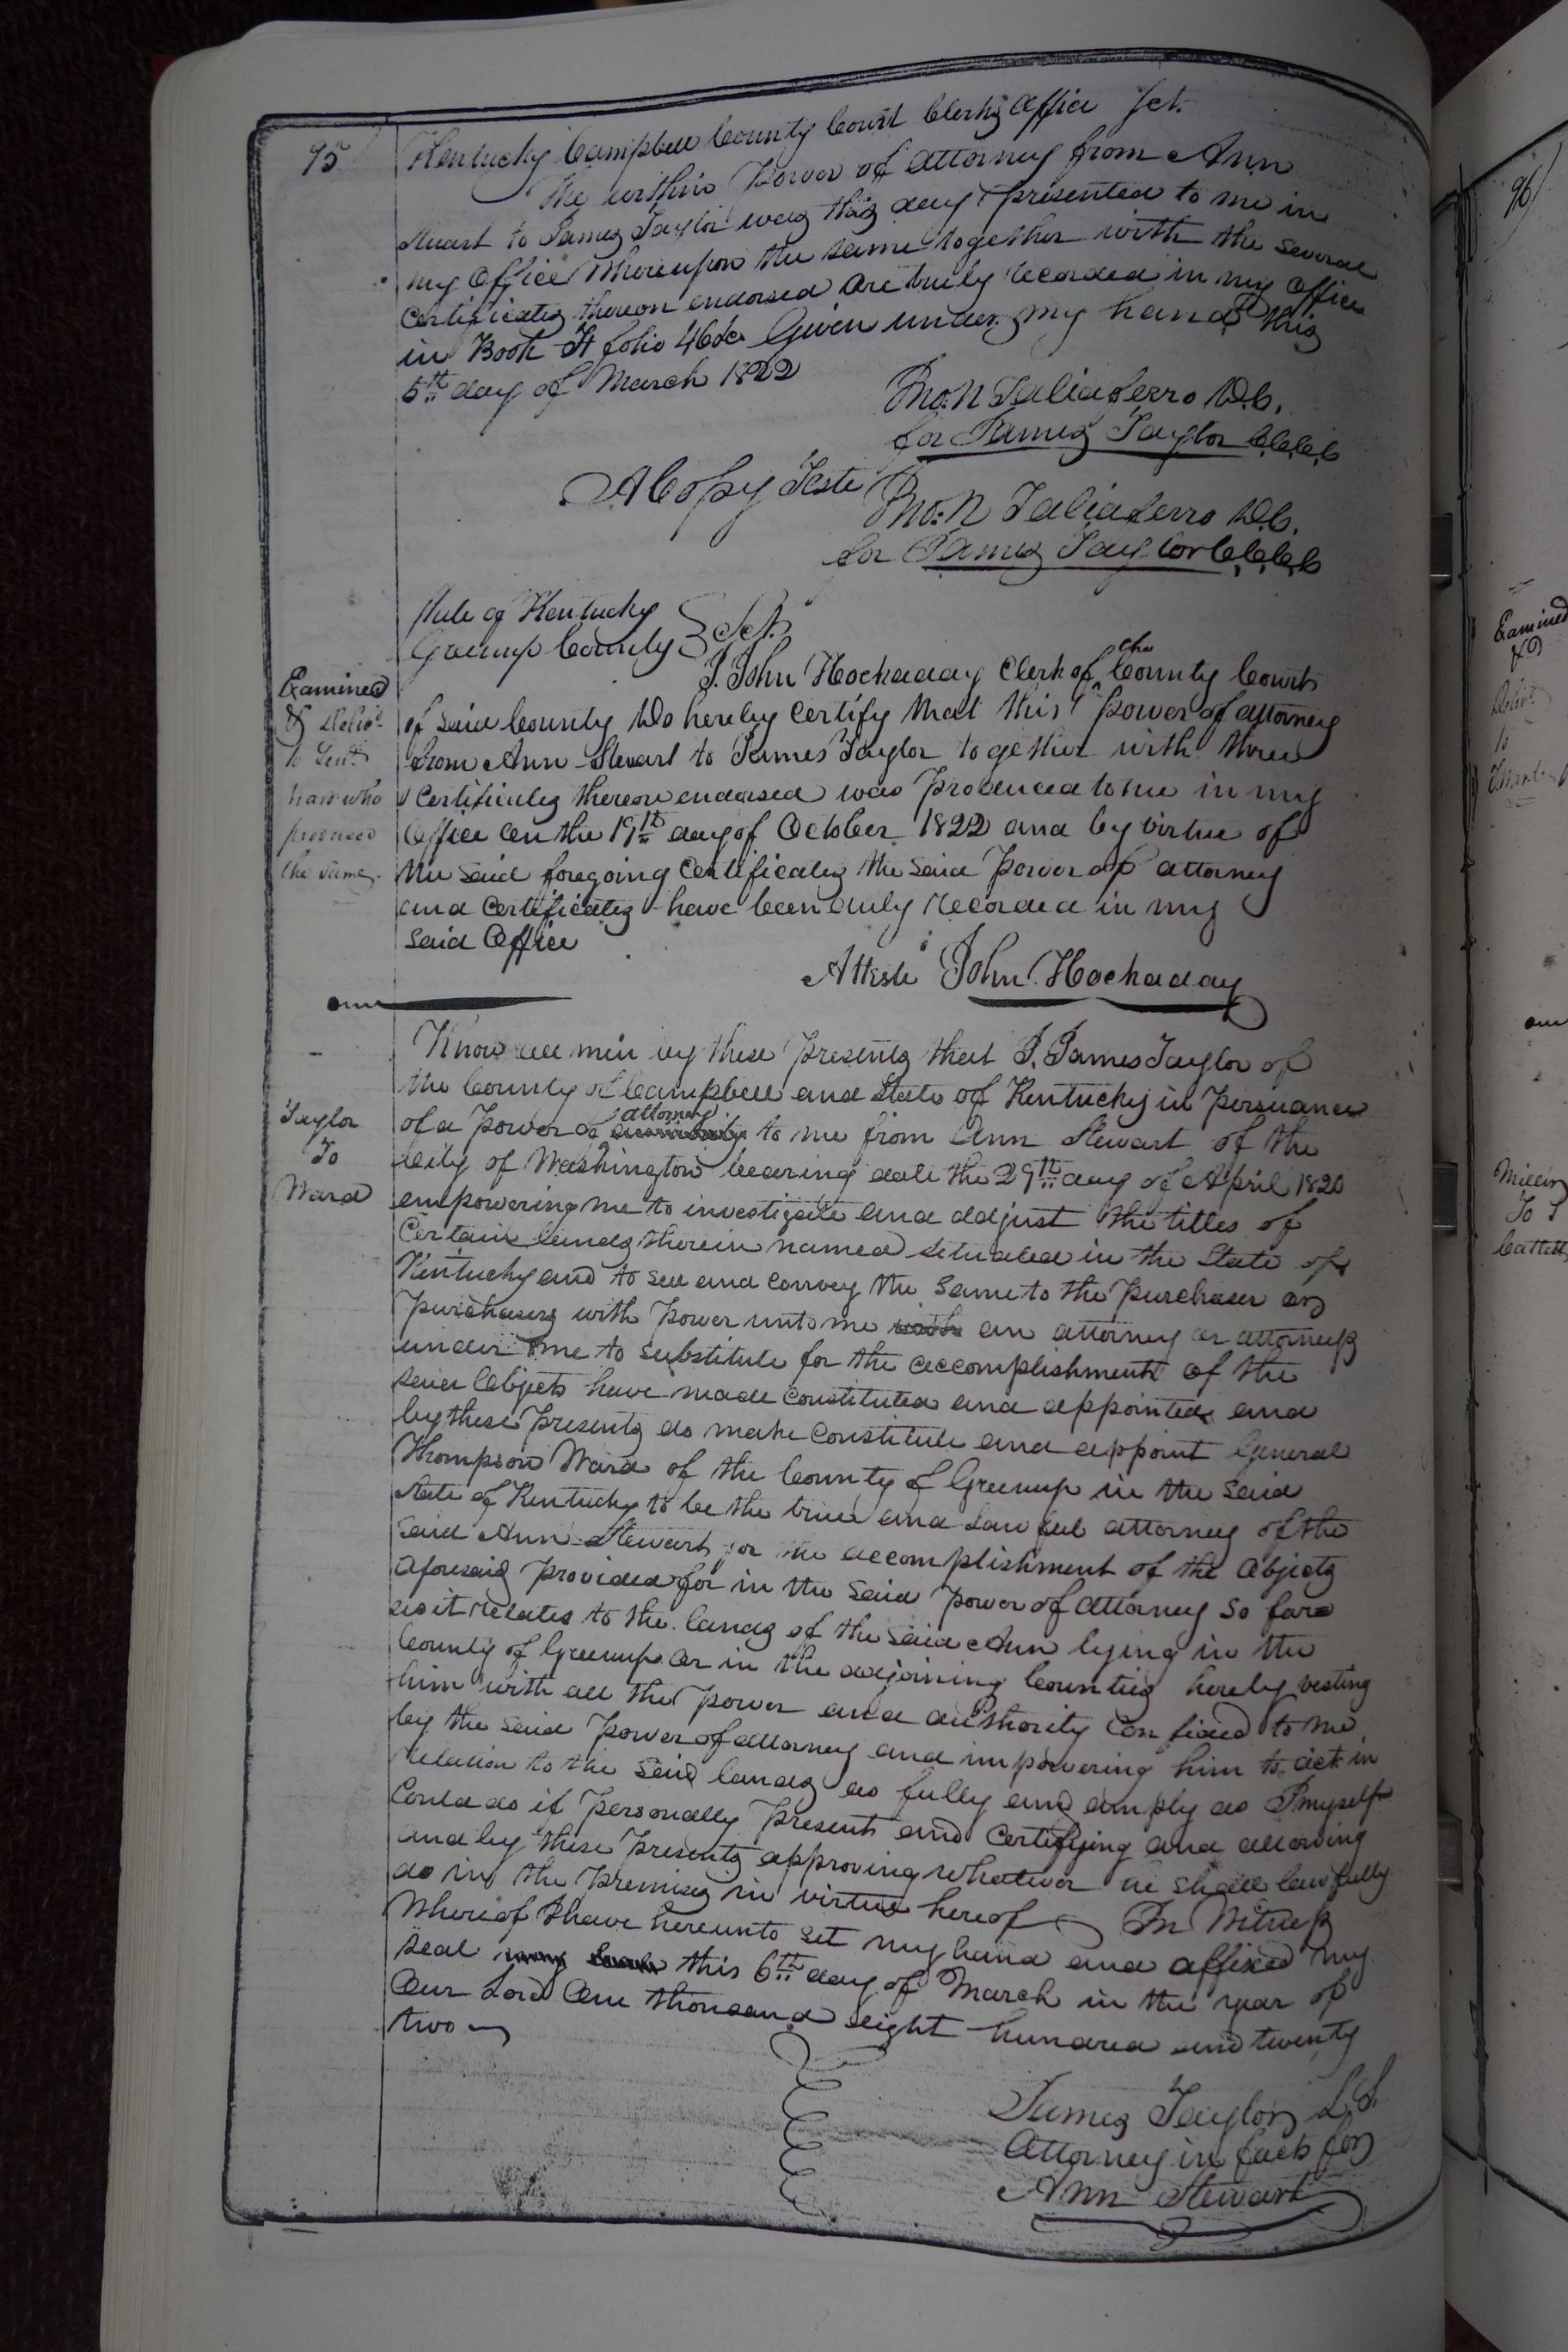 95
Kentucky Campbell County Court Clerks Office Sct.
The within Power of attorney from Ann
Stuart to James Taylor was this day presented to me in
my Office Whereupon the same together with the several
Certificates thereon endorsed are truly recorded in my Office
in Book A folio 46&c Given under my hand this
5th day of March 1822
Jno. N Taliaferro D.C.
for James Taylor C.C.C.C
A Copy Teste
Jno. N Taliaferro D.C.
for James Taylor C.C.C.C
State of Kentucky
Greenup County } Sct.
I. John Hockaday Clerk of the County Court
Examined
& Delivd
to Genl
ward who
produced
the same.
of said County Do hereby Certify that this power of attorney
from Ann Stewart to James Taylor together with three
Certificates thereon endorsed was Produced to me in my
Office on the 19th day of October 1822 and by virtue of
the said foregoing Certificates the said Power of attorney
and Certificates have been duly recorded in my
said Office
Atteste John Hockaday
Know all men by these Presents that I. James Taylor of
the County of Campbell and State of Kentucky in Persuance
Taylor
To
Ward
of a Power of attorney to me from Ann Stewart of the
City of Washington bearing date the 29th day of April 1820
empowering me to investigate and adjust the titles of
Certain lands therein named situated in the State of
Kentucky and to sell and convey the same to the purchaser or
purchasers with Power unto me with an attorney or attorneys
under me to substitute for the accomplishment of the
said Objects have made constituted and appointed and
by these Presents do make Constitute and appoint General
Thompson Ward of the County of Greenup in the said
State of Kentucky to be the true and Lawful attorney of the
said Ann Stewart for the accomplishment of the Objects
aforesaid Provided for in the said power of attorney so fare
as it relates to the lands of the said Ann lying in the
County of Greenup or in the adjoining Counties hereby vesting
him with all the power and authority Confided to me
by the said Power of attorney and impowering him to act in
relation to the said lands as fully and amply as I myself
Could do if Personally Present and Certifying and allowing
and by these Presents approving whatever he shall lawfully
do in the Premises in virtue hereof In Witness
Whereof I have hereunto set my hand and affixed my
seal this 6th day of March in the year of
Our Lord One thousand eight hundred and twenty
two
James Taylor L.S.
Attorney in fact for
Ann Stewart
96
Examined
&
Delivd
to
To